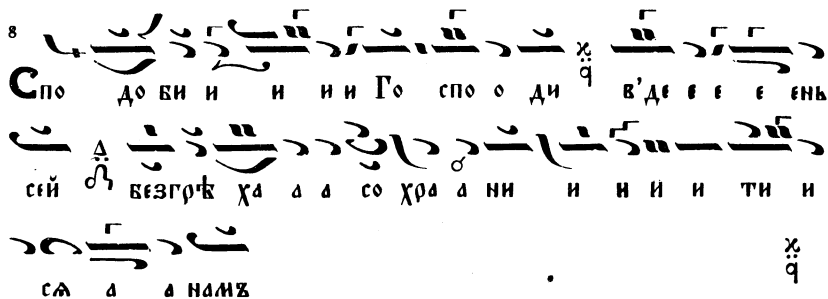 8
Спо до би и и и и Го спо о ди в'де е е е ень
сей безгрѣ ха а а со хра а ни и н й и ти и
сѧ а а намъ